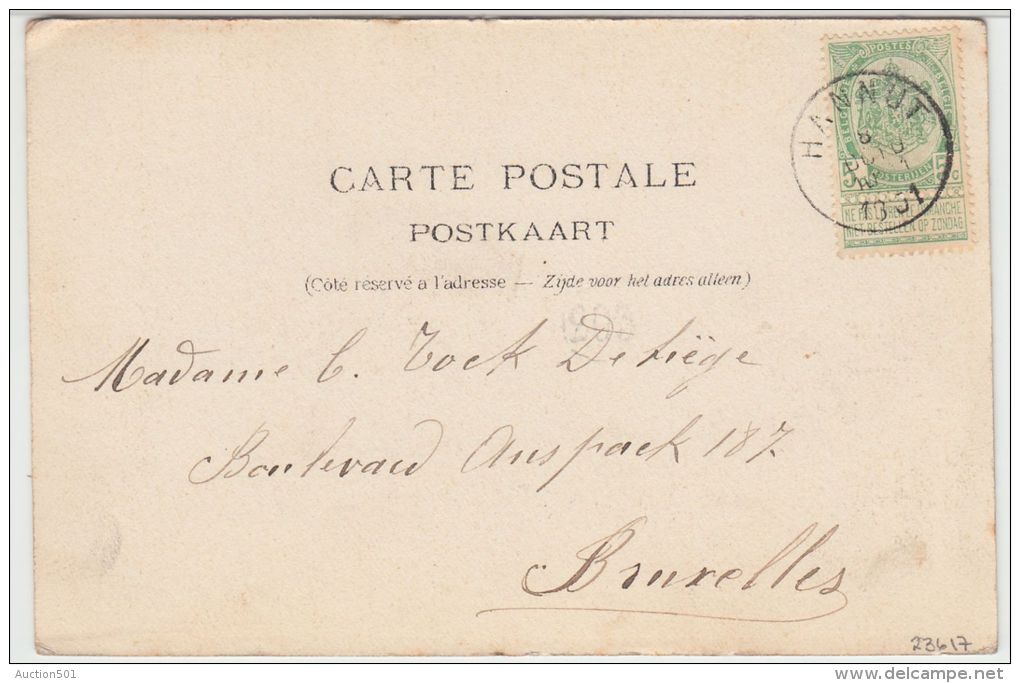 POSTES
HANNUT
5 5c
NE PAS LIVRER LE DIMANCHE
NIET BESTELLEN OP ZONDAG
CARTE POSTALE
POSTKAART
(Côté réservé a l'adresse — Zijde voor het adres alleen)
Madame C. Tock Deliège
Boulevard Anspack 187
Bruxelles
23617
Auction501
www.delcampe.net